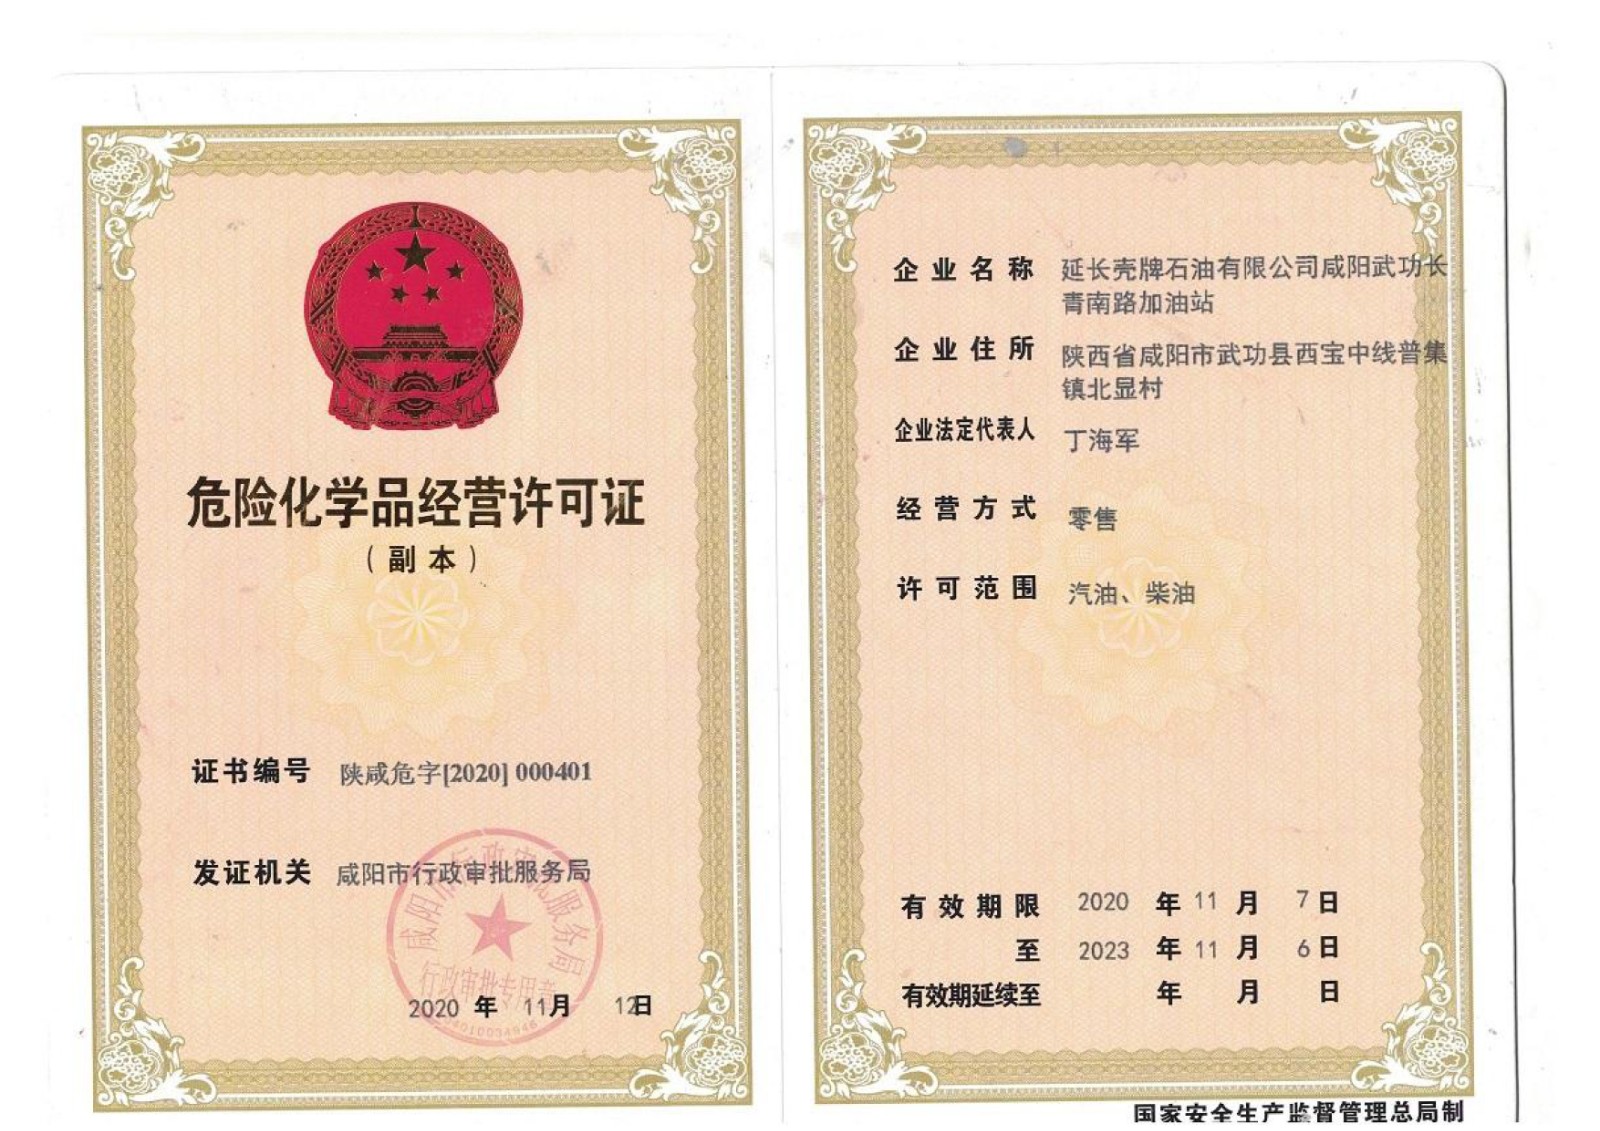 危险化学品经营许可证
（副本）
证书编号 陕咸危字[2020] 000401
发证机关 咸阳市行政审批服务局
咸阳市行政审批服务局
行政审批专用章
2020 年 11月 12日
企业名称 延长壳牌石油有限公司咸阳武功长
青南路加油站
企业住所 陕西省咸阳市武功县西宝中线普集
镇北显村
企业法定代表人 丁海军
经营方式 零售
许可范围 汽油、柴油
有效期限 2020 年 11 月 7日
至 2023 年 11 月 6日
有效期延续至 年 月 日
国家安全生产监督管理总局制